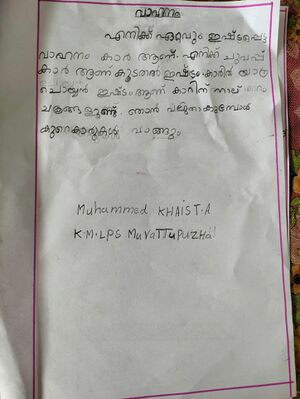 വാഹനം
എനിക്ക് ഏറ്റവും ഇഷ്ടപ്പെട്ട
വാഹനം കാർ ആണ്. എനിക്ക് ചുവപ്പ്
കാർ ആണ് കൂടുതൽ ഇഷ്ടം. കാരിൽ യാത്ര
ചെയ്യാൻ ഇഷ്ടം ആണ് കാറിന് നാല്
ചക്രങ്ങളുണ്ട്. ഞാൻ വലുതാകുമ്പോൾ
കുറെ കാറുകൾ വാങ്ങും
Muhammed KHAIS T.A
K.M.LPS MuvaTTuPuZHa